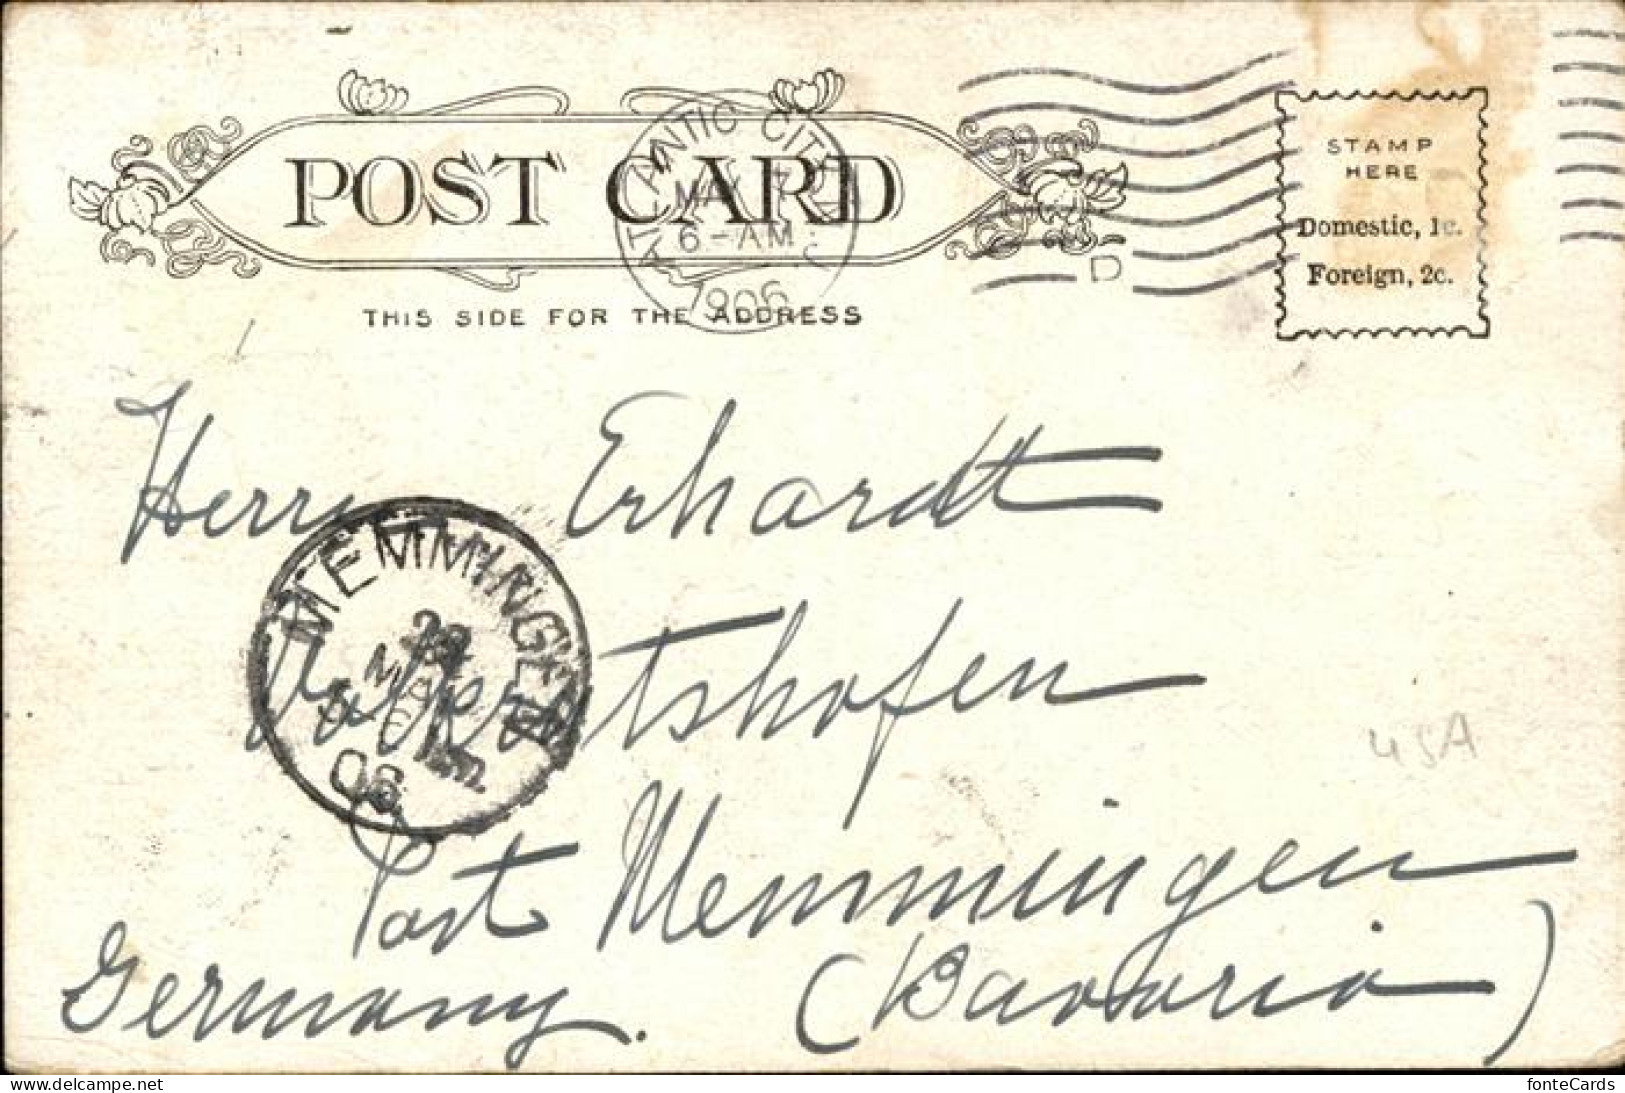 POST CARD
ATLANTIC CITY
MAY 7
6-AM
1906
D
STAMP
HERE
Domestic, 1c.
Foreign, 2c.
THIS SIDE FOR THE ADDRESS
Herrn Erhardt
MEMMINGEN
MAI
06
Post Memmingen
Germany. (Bavaria)
USA
fonteCards